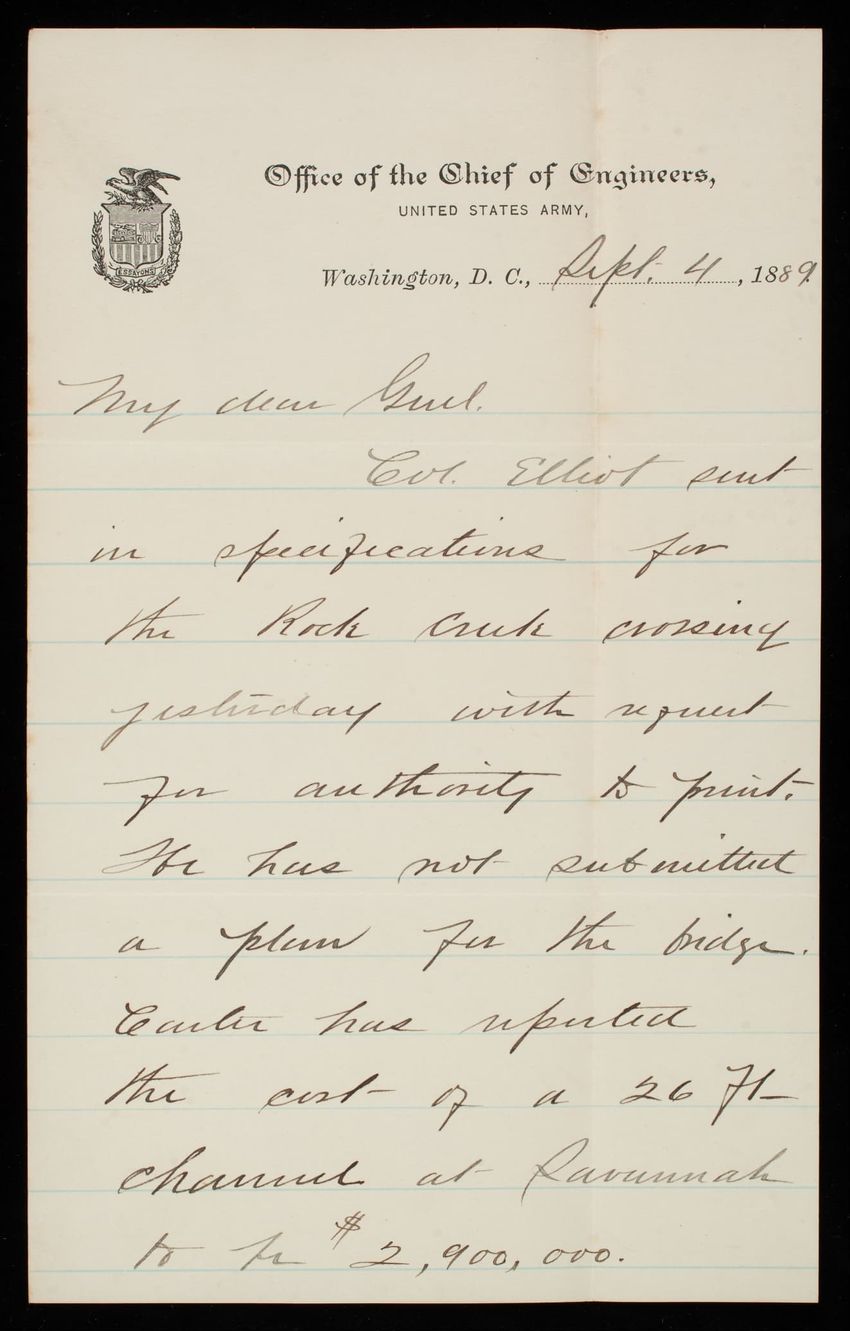 Office of the Chief of Engineers,
UNITED STATES ARMY,
ESSAYONS
Washington, D. C., Sept. 4, 1889.
My dear Genl.
Col. Elliot sent
in specifications for
the Rock Creek crossing
yesterday with request
for authority to print.
He has not submitted
a plan for the bridge.
Carter has reported
the cost of a 26 ft
channel at Savannah
to be $2,900,000.